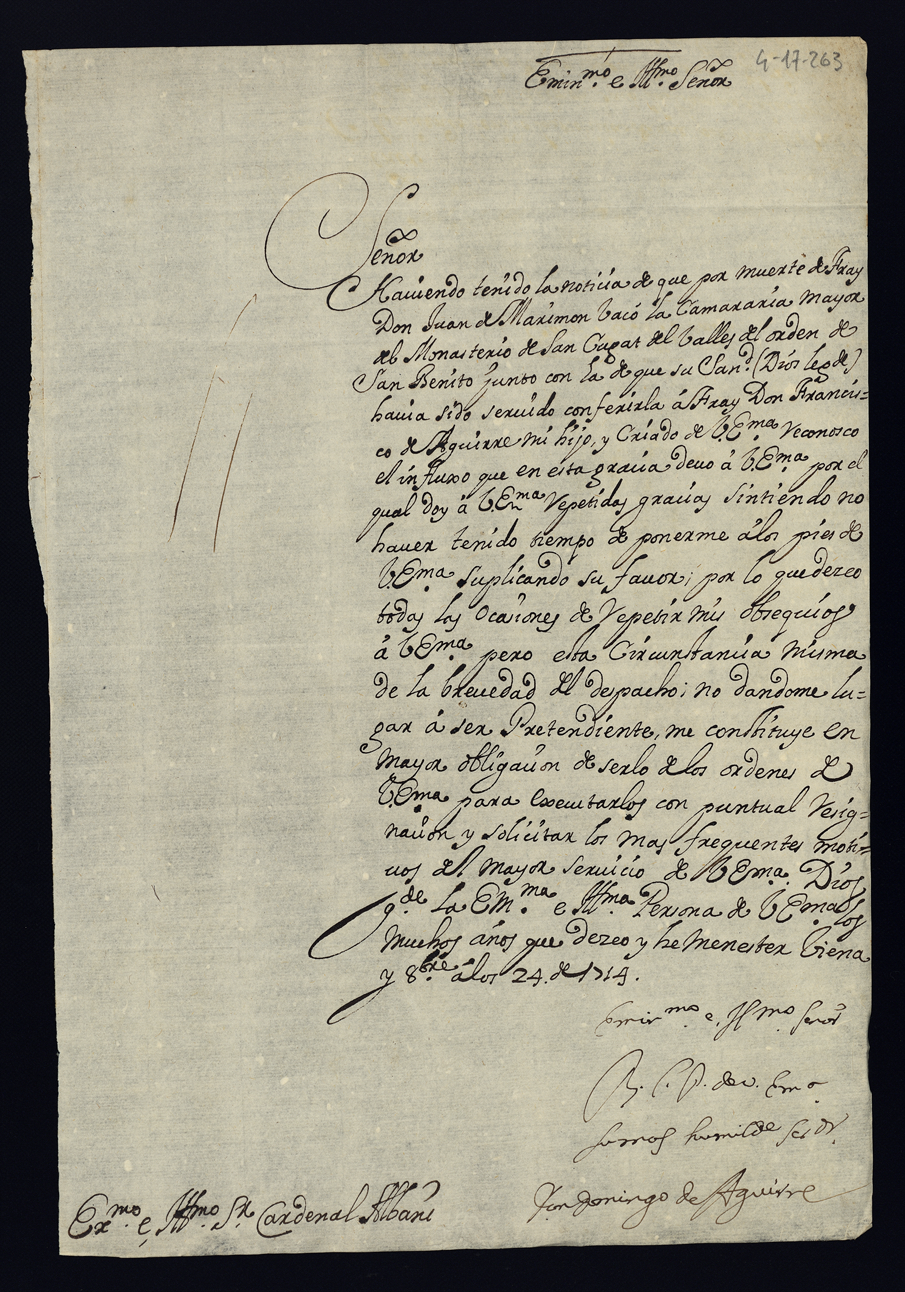 4-17-263
Emin.mo e Ill.mo Señor
Señor
Haviendo tenido la noticia de que por muerte de Fray
Don Juan de Marimon vacó la Camararia mayor
del Monasterio de San Cugat del Valles del orden de
San Benito junto con la de que su San.d (Dios le g.de)
havia sido servido conferirla á Fray Don Francis=
co de Aguirre mi hijo, y Criado de V.Ema. Reconosco
el influxo que en esta gracia devo á V.Ema. por el
qual doy á V.Em.ma Repetidas gracias sintiendo no
haver tenido tiempo de ponerme á los pies de
V.Ema. suplicando su favor; por lo que dezeo
todas las Ocasiones de Repetir mis obsequios
á V.Ema. pero esta Circunstancia misma
de la brevedad del despacho; no dandome lu=
gar á ser Pretendiente, me constituye en
mayor obligacion de serlo de los ordenes de
V.Ema. para executarlos con puntual Resig=
nacion y solicitar los mas frequentes moti=
vos del mayor servicio de V.Ema. Dios
g.de la Em.ma e Ill.ma Persona de V.Ema. los
muchos años que dezeo y he menester Viena
y 8bre á los 24. de 1714.
Emin.mo e Ill.mo Señor
B. L. P. de V. Em.a
su mas humilde ser.dr
Don Domingo de Aguirre
Ex.mo e Ill.mo S.r Cardenal Albani